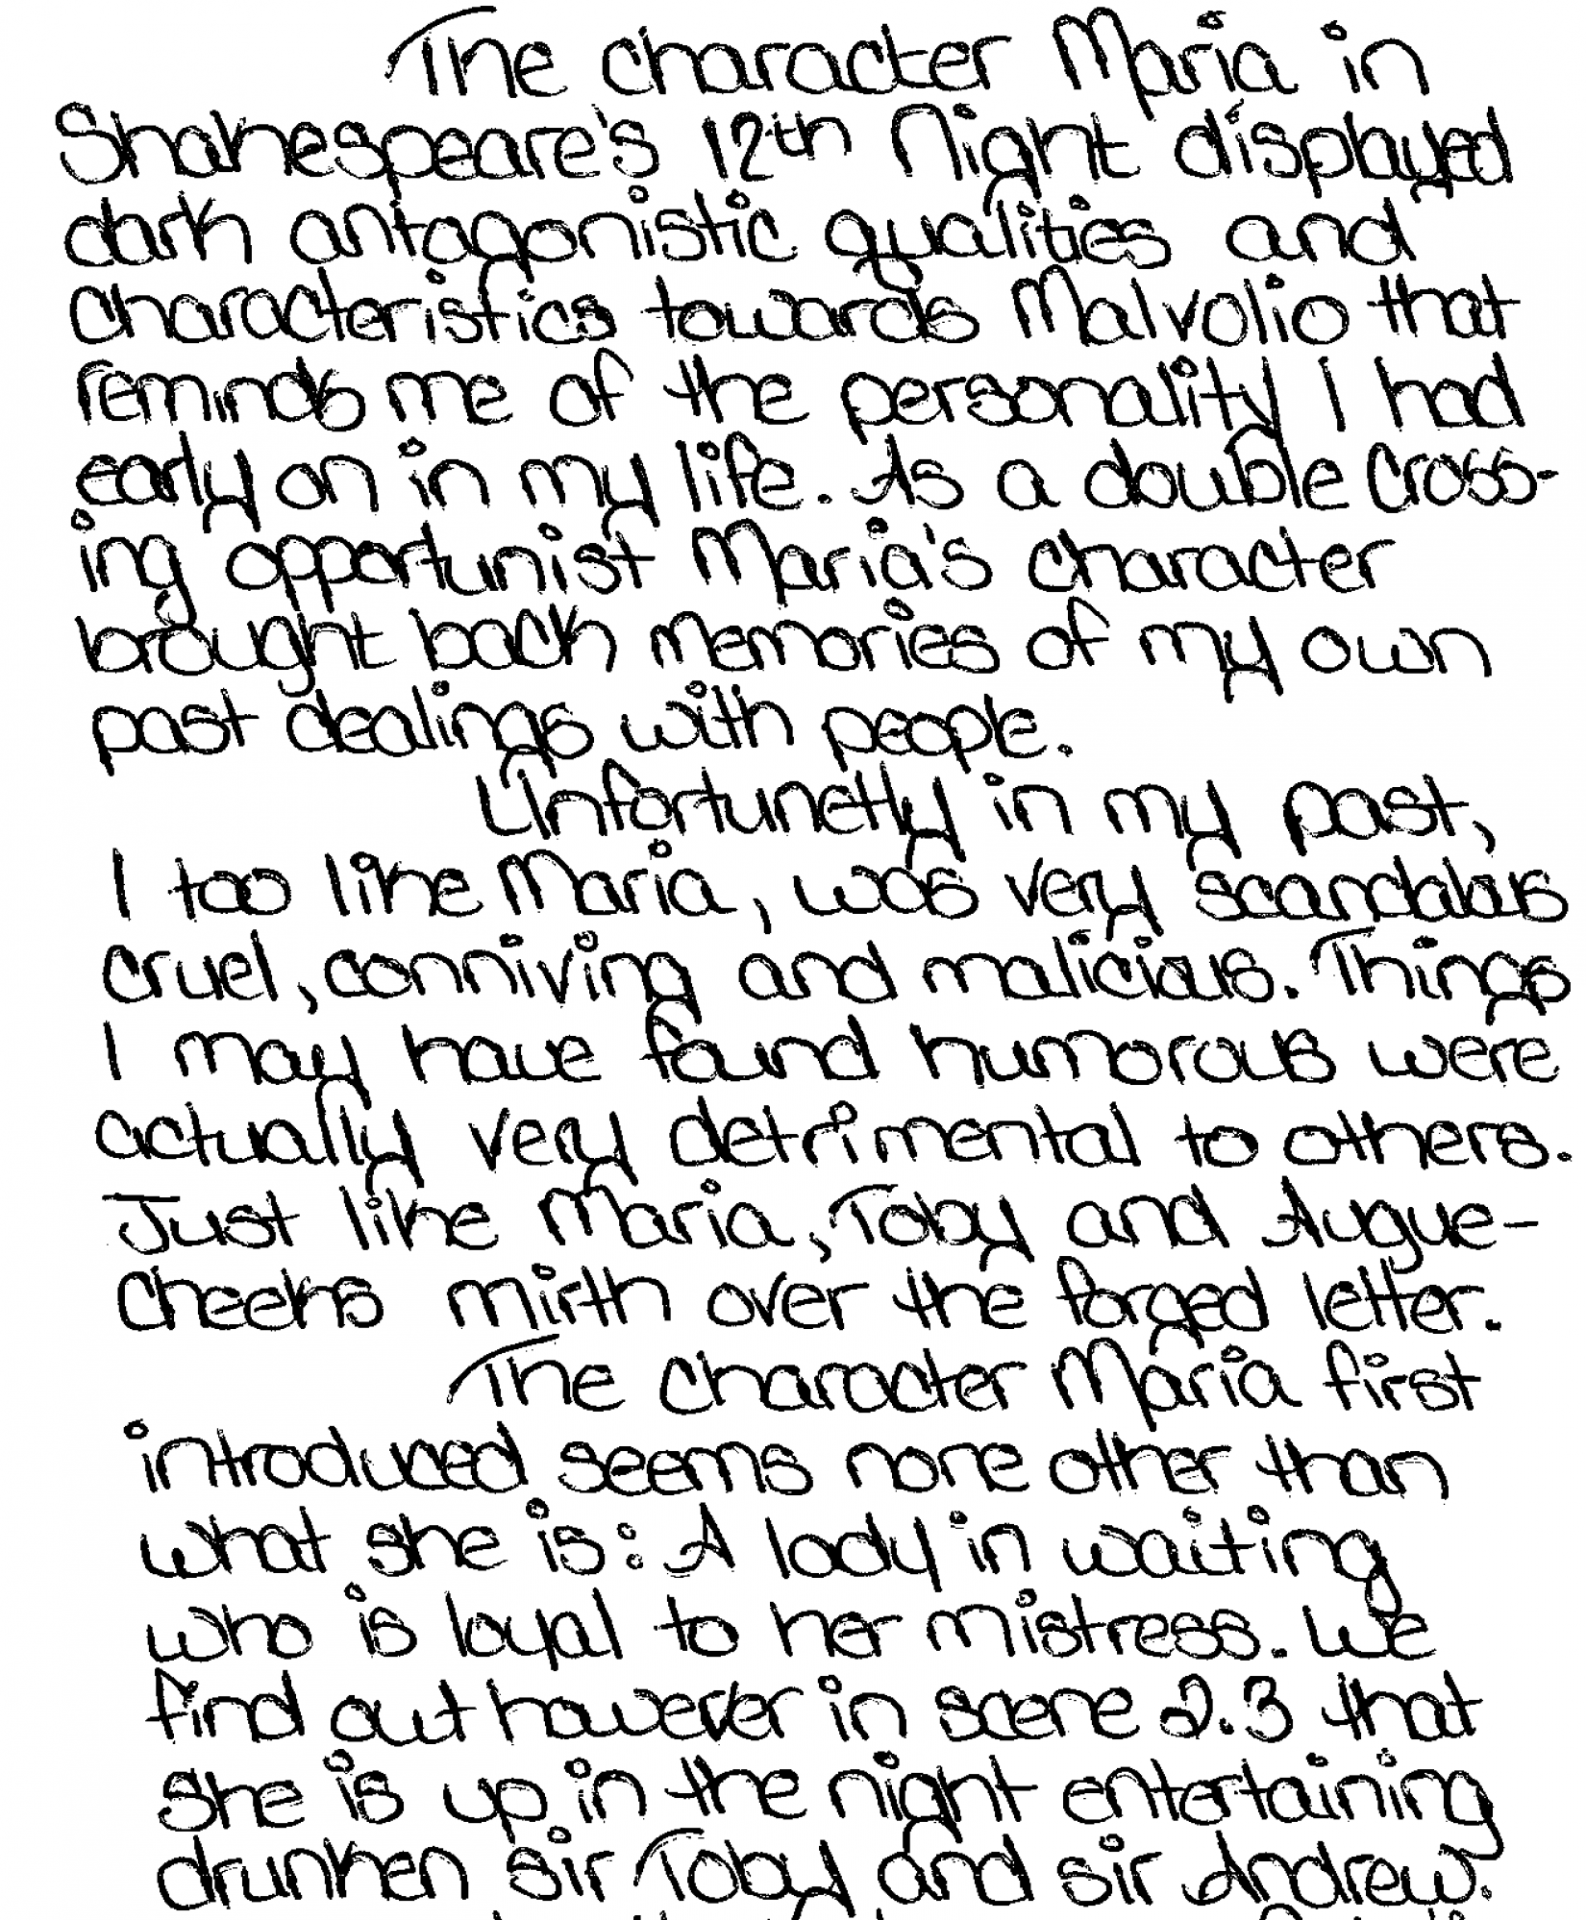 The character Maria in
Shakespeare's 12th Night displayed
dark antagonistic qualities and
characteristics towards Malvolio that
reminds me of the personality I had
early on in my life. As a double cross-
ing opportunist Maria's character
brought back memories of my own
past dealings with people.
Unfortunetly in my past,
I too like Maria, was very scandalous
cruel, conniving and malicious. Things
I may have found humorous were
actually very detrimental to others.
Just like Maria, Toby and Augue-
cheeks mirth over the forged letter.
The character Maria first
introduced seems none other than
what she is: A lady in waiting
who is loyal to her mistress. We
find out however in scene 2.3 that
she is up in the night entertaining
drunken sir Toby and sir Andrew.